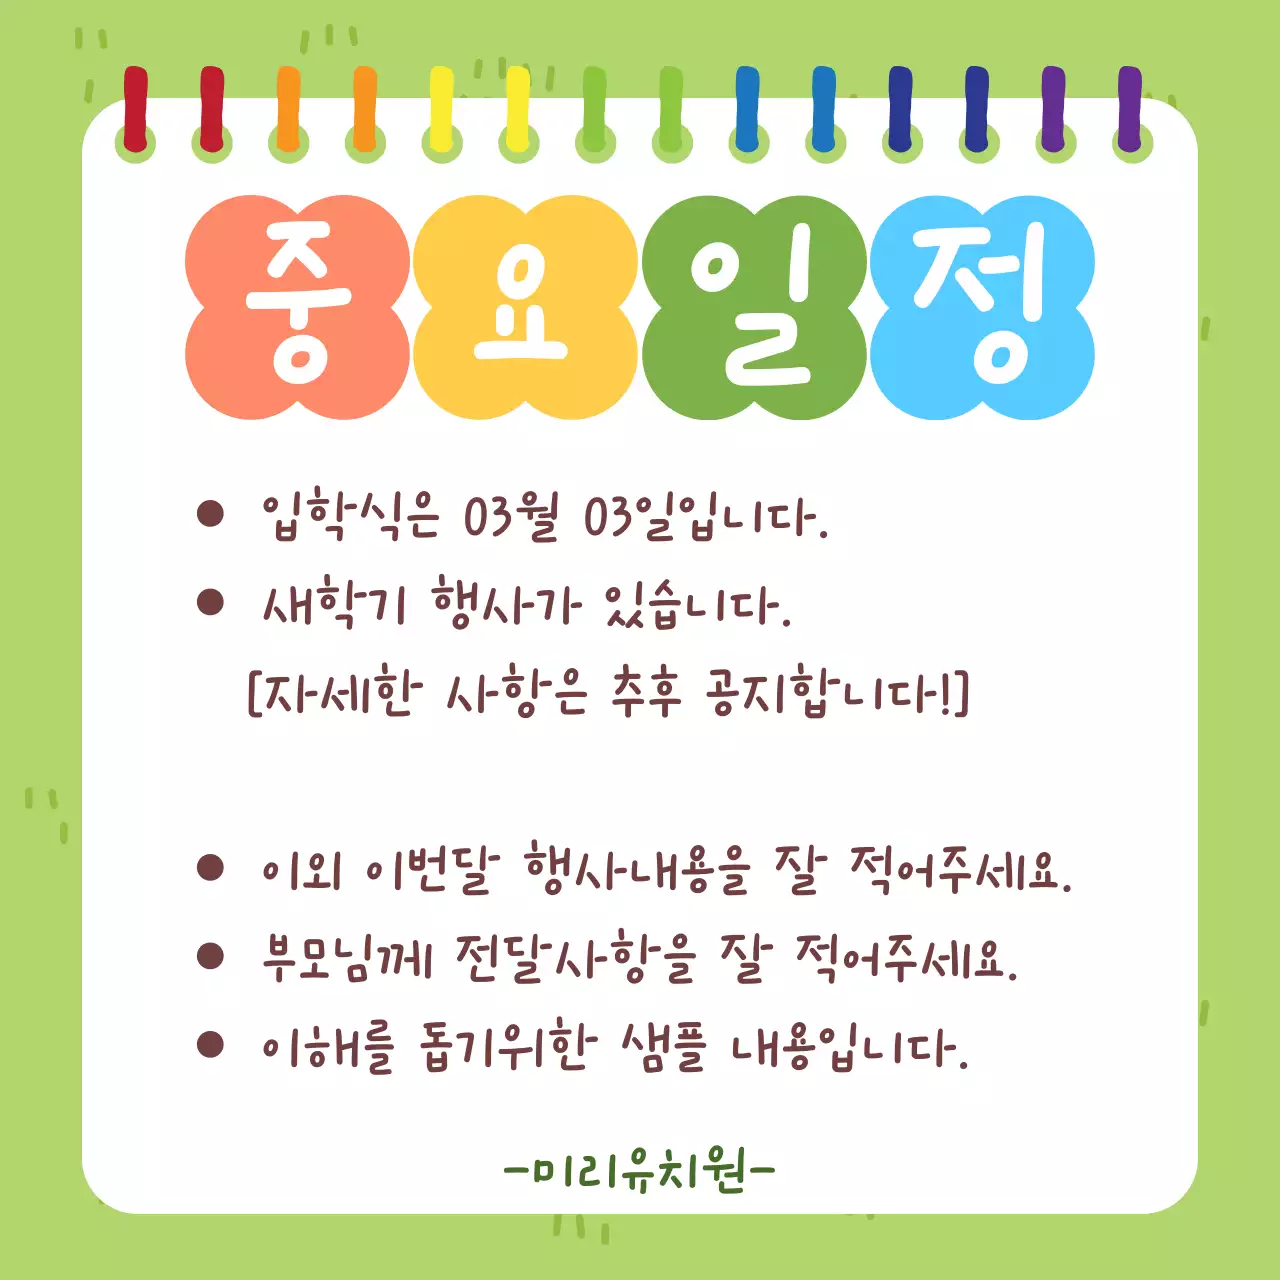 중요일정
● 입학식은 03월 03일입니다.
● 새학기 행사가 있습니다.
[자세한 사항은 추후 공지합니다!]
● 이외 이번달 행사내용을 잘 적어주세요.
● 부모님께 전달사항을 잘 적어주세요.
● 이해를 돕기위한 샘플 내용입니다.
-미리유치원-